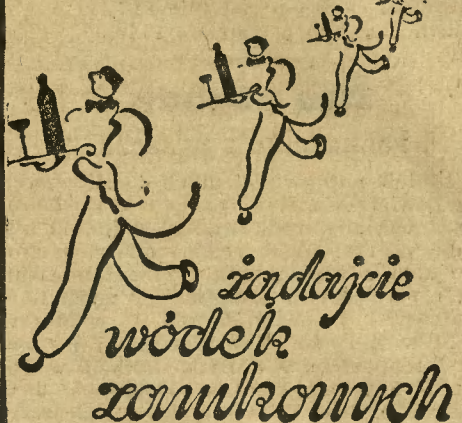 żądajcie
wódek
zamkowych